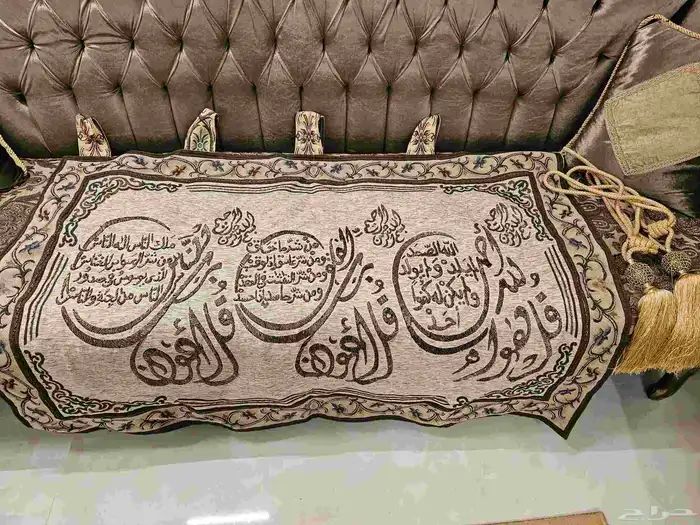 بسم الله الرحمن الرحيم
قل هو الله أحد
الله الصمد
لم يلد ولم يولد
ولم يكن له كفوا
أحد
بسم الله الرحمن الرحيم
قل أعوذ برب الفلق
من شر ما خلق
ومن شر غاسق إذا وقب
ومن شر النفثت في العقد
ومن شر حاسد إذا حسد
بسم الله الرحمن الرحيم
قل أعوذ برب الناس
ملك الناس إله الناس
من شر الوسواس الخناس
الذي يوسوس في صدور
الناس من الجنة والناس
حراج